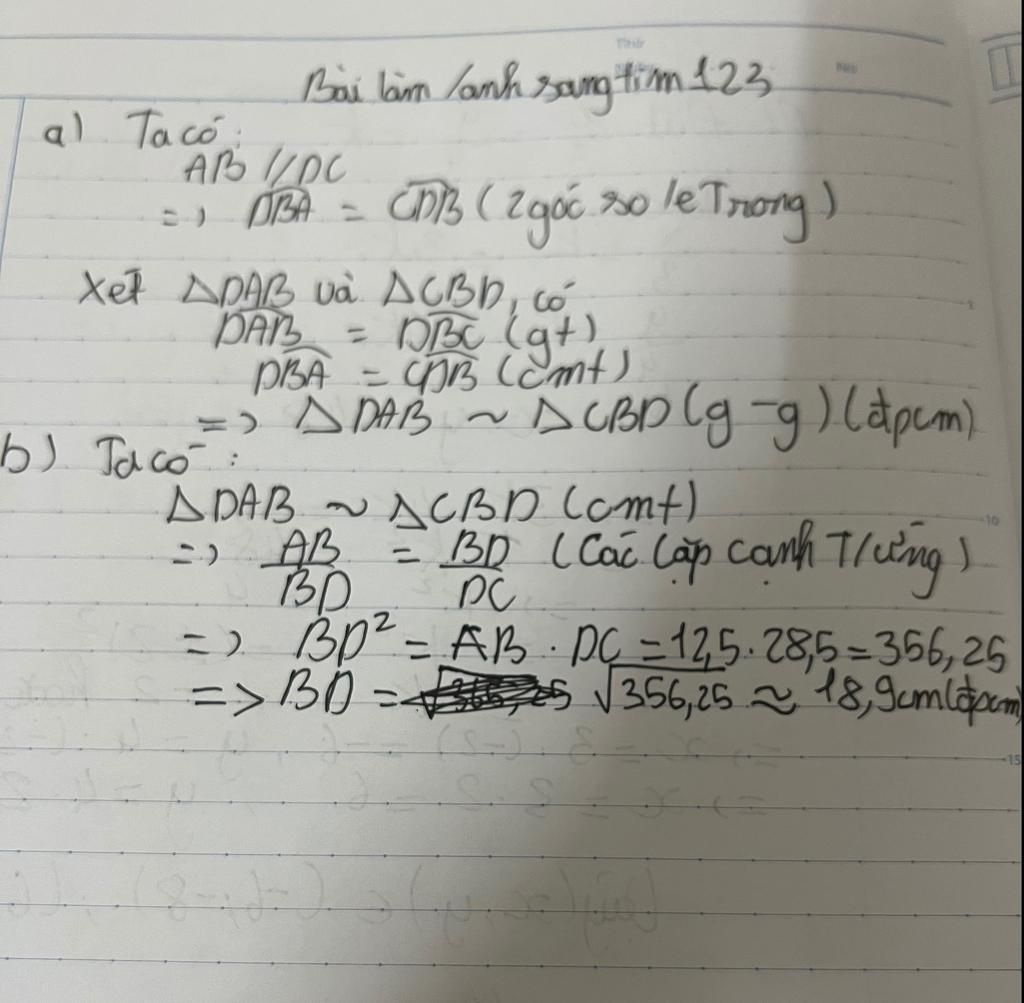 Bài làm /anh sang tim 123
a) Ta có:
AB // DC
=> DBA = CDB (2 góc so le Trong)
Xét △DAB và △CBD, có
DAB = DBC (gt)
DBA = CDB (cmt)
=> △DAB ~ △CBD (g-g) (đpcm)
b) Ta có:
△DAB ~ △CBD (cmt)
=> AB/BD = BD/DC (Các cặp cạnh T/ứng)
=> BD² = AB . DC = 12,5 . 28,5 = 356,25
=> BD = √356,25 ≈ 18,9cm (đpcm)